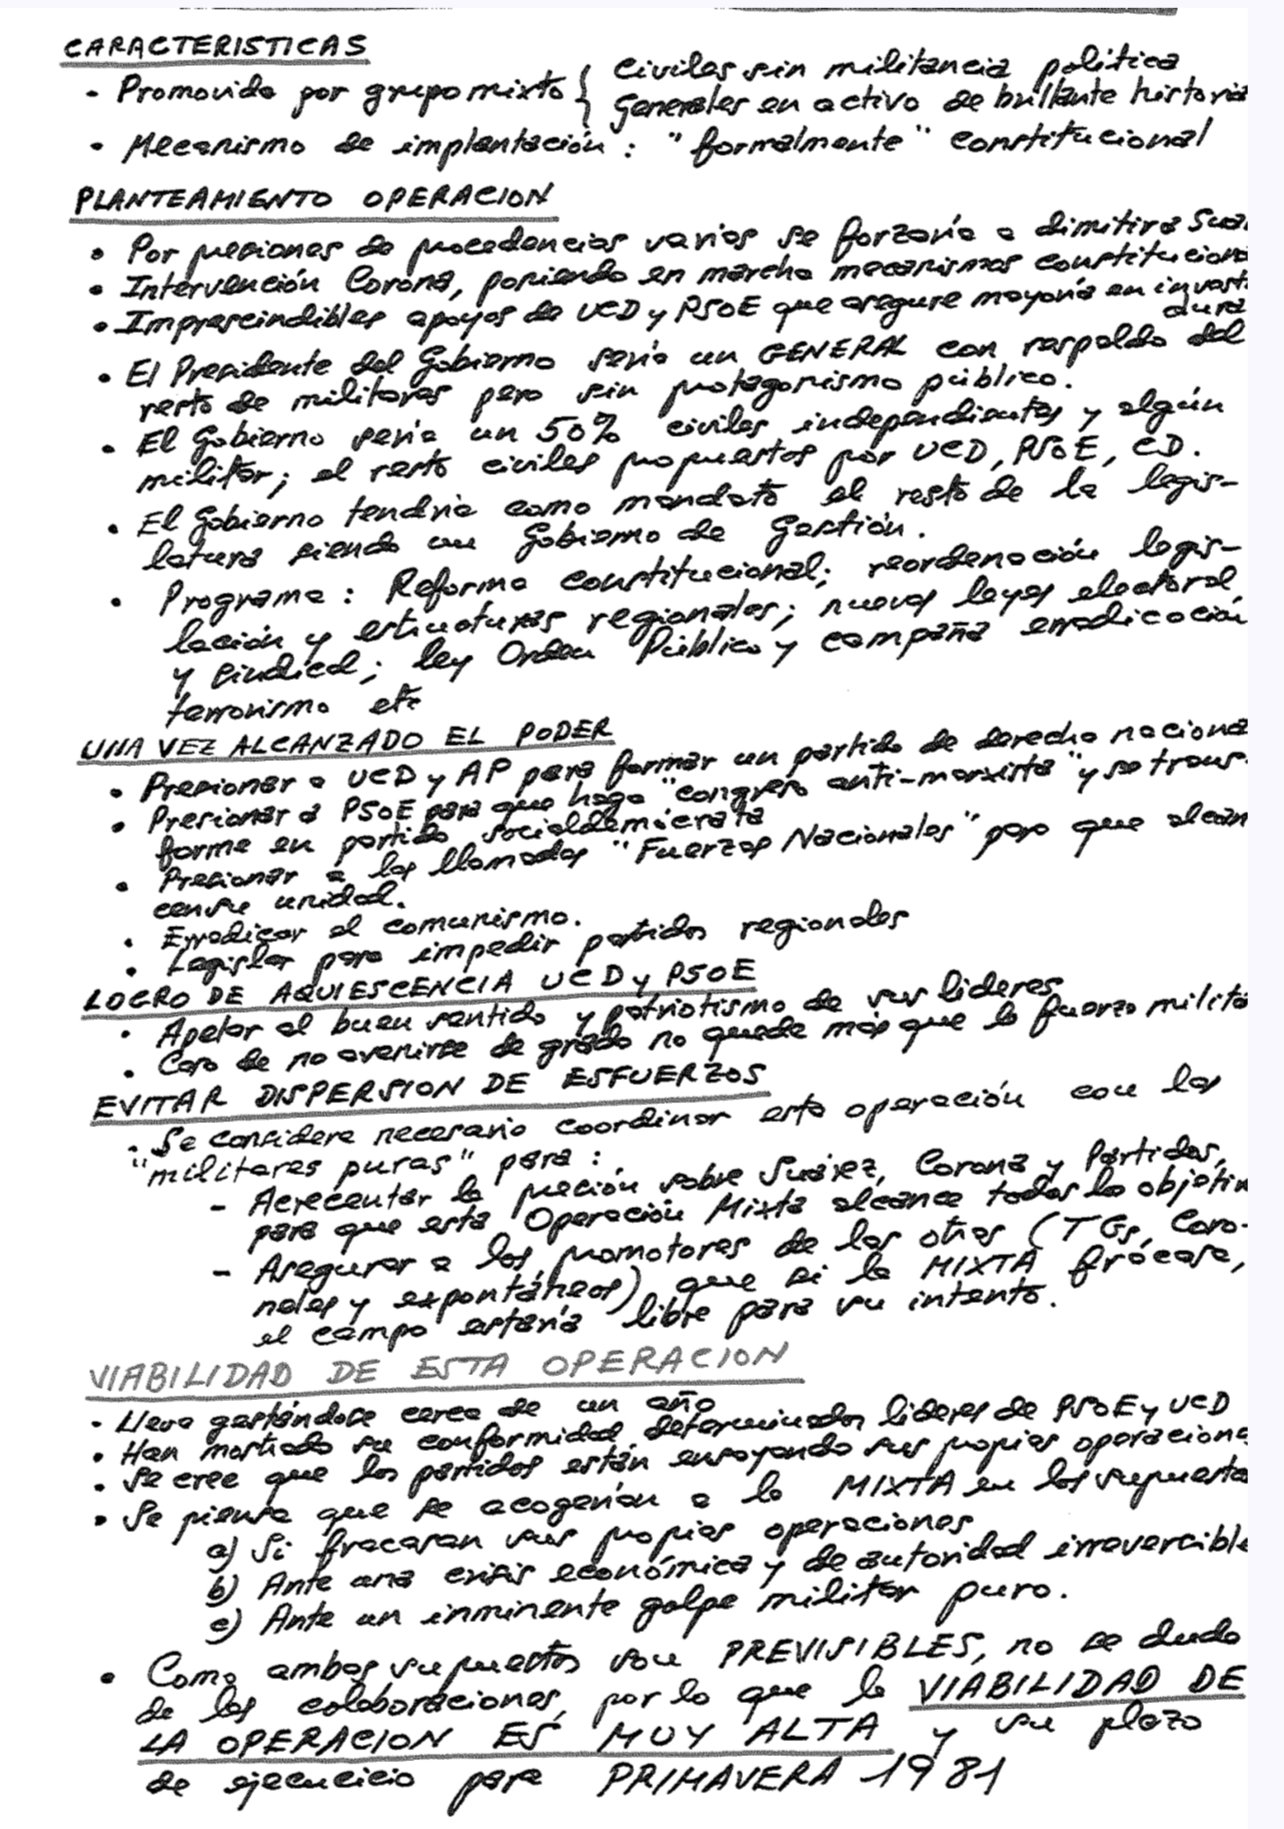 CARACTERISTICAS
- Promovida por grupo mixto { Civiles sin militancia política
Generales en activo de brillante historia
- Mecanismo de implantación: "formalmente" constitucional
PLANTEAMIENTO OPERACION
• Por presiones de procedencias varias se forzaría a dimitir a Sua
• Intervención Corona, poniendo en marcha mecanismos constituciona
• Imprescindibles apoyos de UCD y PSOE que asegure mayoría en invest-
dura
• El Presidente del Gobierno sería un GENERAL con respaldo del
resto de militares pero sin protagonismo público.
• El Gobierno sería un 50% civiles independientes y algún
militar; el resto civiles propuestos por UCD, PSOE, CD.
• El Gobierno tendría como mandato el resto de la legis-
latura siendo un Gobierno de Gestión.
• Programa: Reforma constitucional; reordenación legis-
lación y estructuras regionales; nuevas leyes electoral,
y sindical; ley Orden Público y campaña erradicación
terrorismo etc
UNA VEZ ALCANZADO EL PODER
• Presionar a UCD y AP para formar un partido de derecha naciona
• Presionar a PSOE para que haga "congreso anti-marxista" y se trans-
forme en partido socialdemócrata
• Presionar a las llamadas "Fuerzas Nacionales" para que alcan
cen su unidad.
• Erradicar el comunismo.
• Legislar para impedir partidos regionales
LOGRO DE AQUIESCENCIA UCD y PSOE
• Apelar al buen sentido y patriotismo de sus líderes
• Caso de no avenirse de grado no quede más que la fuerza milita
EVITAR DISPERSION DE ESFUERZOS
• Se considera necesario coordinar esta operación con las
"militares puras" para:
- Acrecentar la presión sobre Suárez, Corona y Partidos,
para que esta Operación Mixta alcance todos lo objetiv
- Asegurar a los promotores de las otras (TGs, Coro-
neles y expontáneos) que si la MIXTA frácase,
el campo estaría libre para su intento.
VIABILIDAD DE ESTA OPERACION
• Lleva gestándose cerca de un año
• Han mostrado su conformidad determinados líderes de PSOE y UCD
• Se cree que los partidos están ensayando sus propias operacione
• Se piensa que se acogerían a la MIXTA en los supuesto
a) Si fracasan sus propias operaciones
b) Ante una crisis económica y de autoridad irreversible
c) Ante un inminente golpe militar puro.
• Como ambos supuestos son PREVISIBLES, no se duda
de las colaboraciones, por lo que la VIABILIDAD DE
LA OPERACION ES MUY ALTA y su plazo
de ejecucicio para PRIMAVERA 1981